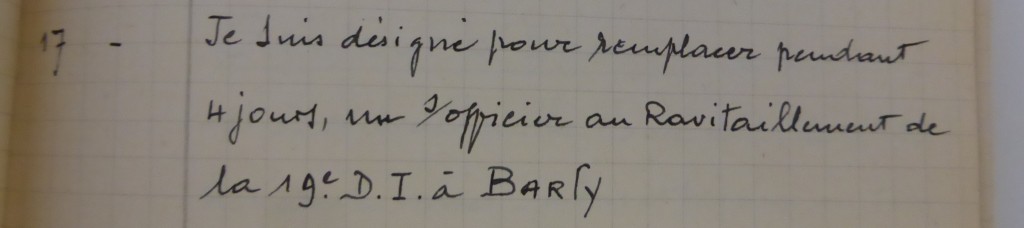 17 - Je suis désigné pour remplacer pendant
4 jours, un s/officier au Ravitaillement de
la 19e. D.I. à BARly